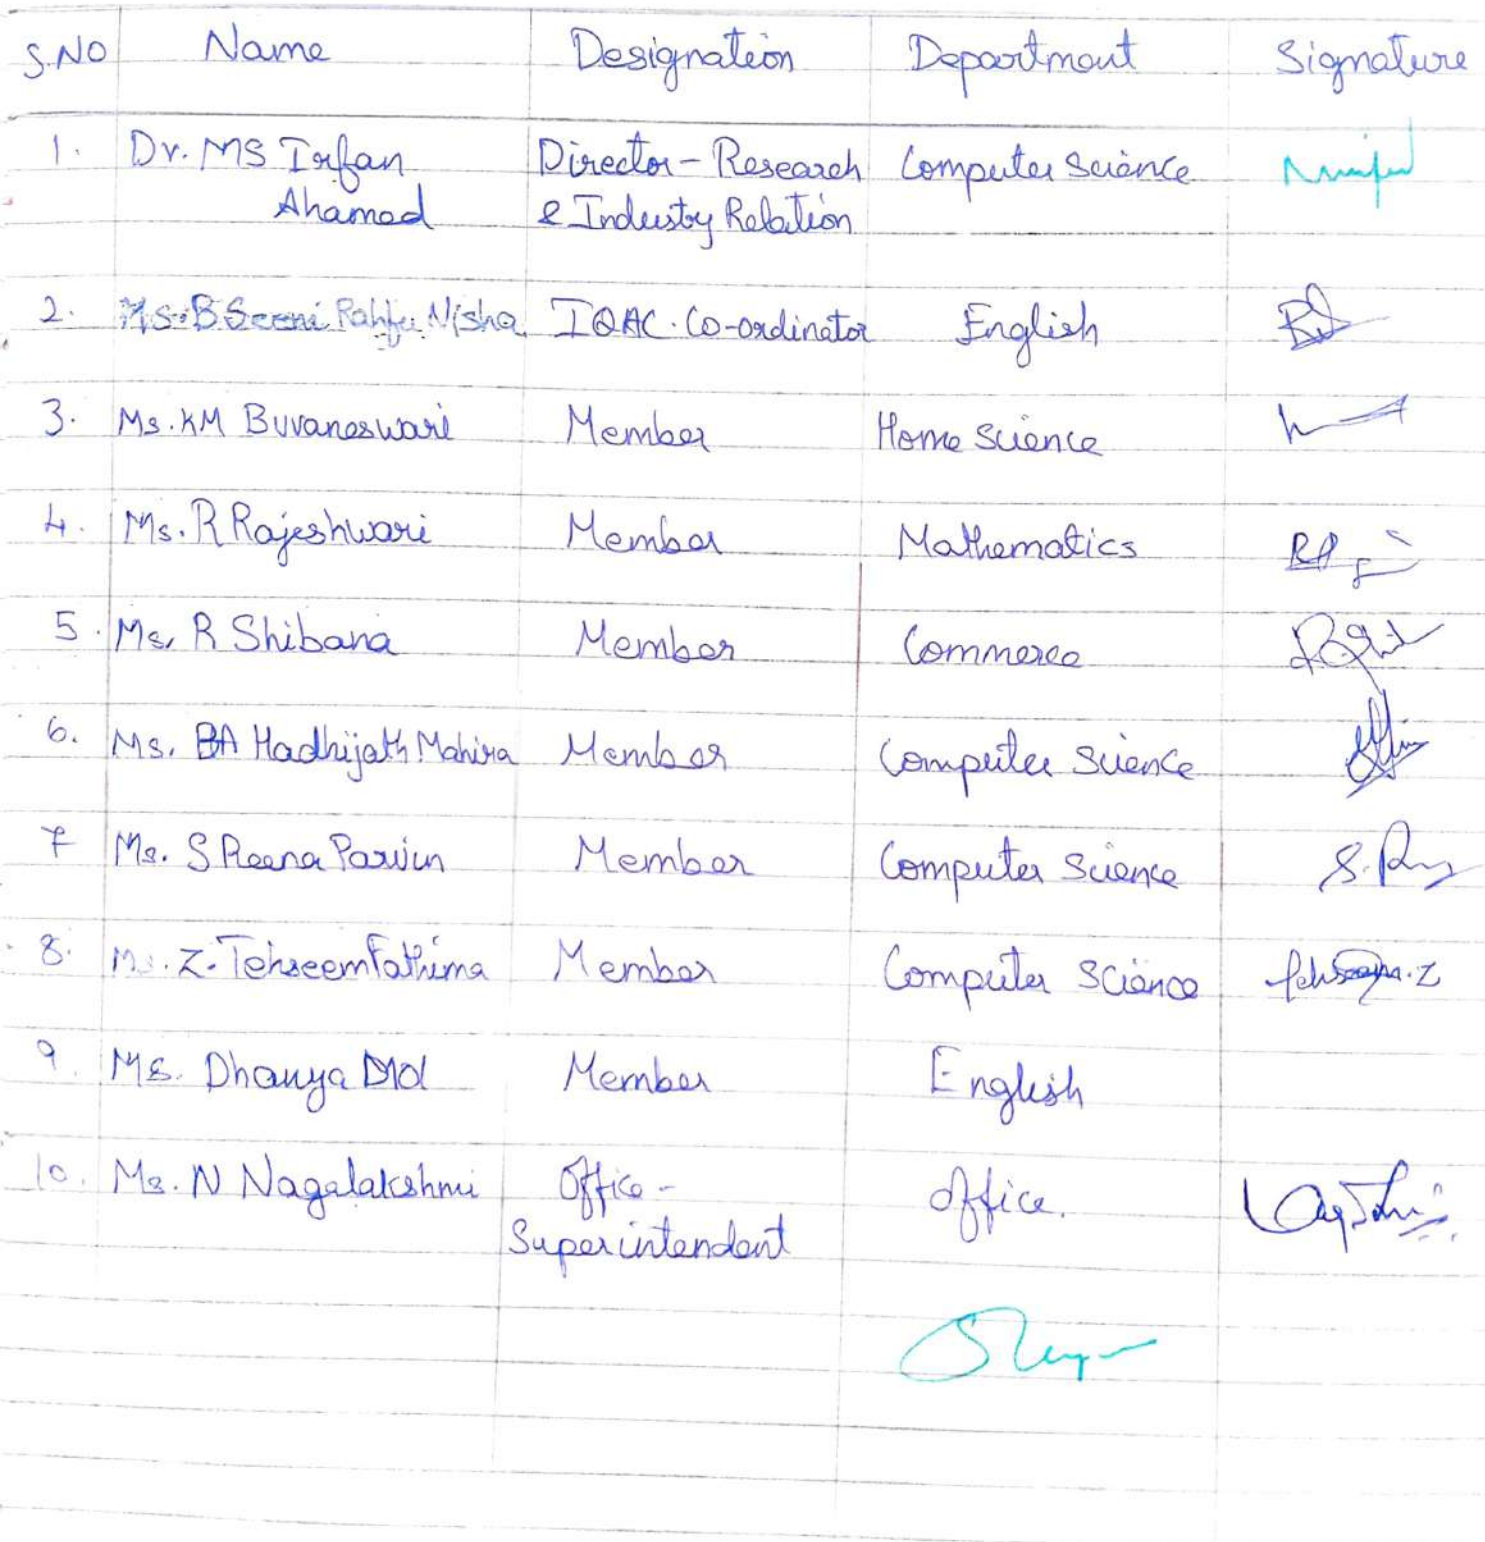 S.NO Name Designation Department Signature
1. Dr. MS Irfan Director - Research Computer Science
Ahamed & Industry Relation
2. Ms. B Seeni Rahfu Nisha IQAC. Co-ordinator English
3. Ms. KM Buvaneswari Member Home Science
4. Ms. R Rajeshwari Member Mathematics
5. Ms. R Shibana Member Commerce
6. Ms. BA Hadhijath Mahira Member Computer Science
7 Ms. S Reena Parvin Member Computer Science
8. Ms. Z. Tehseem Fathima Member Computer Science
9. Ms. Dhanya Mol Member English
10. Ms. N Nagalakshmi Office - office.
Superintendent